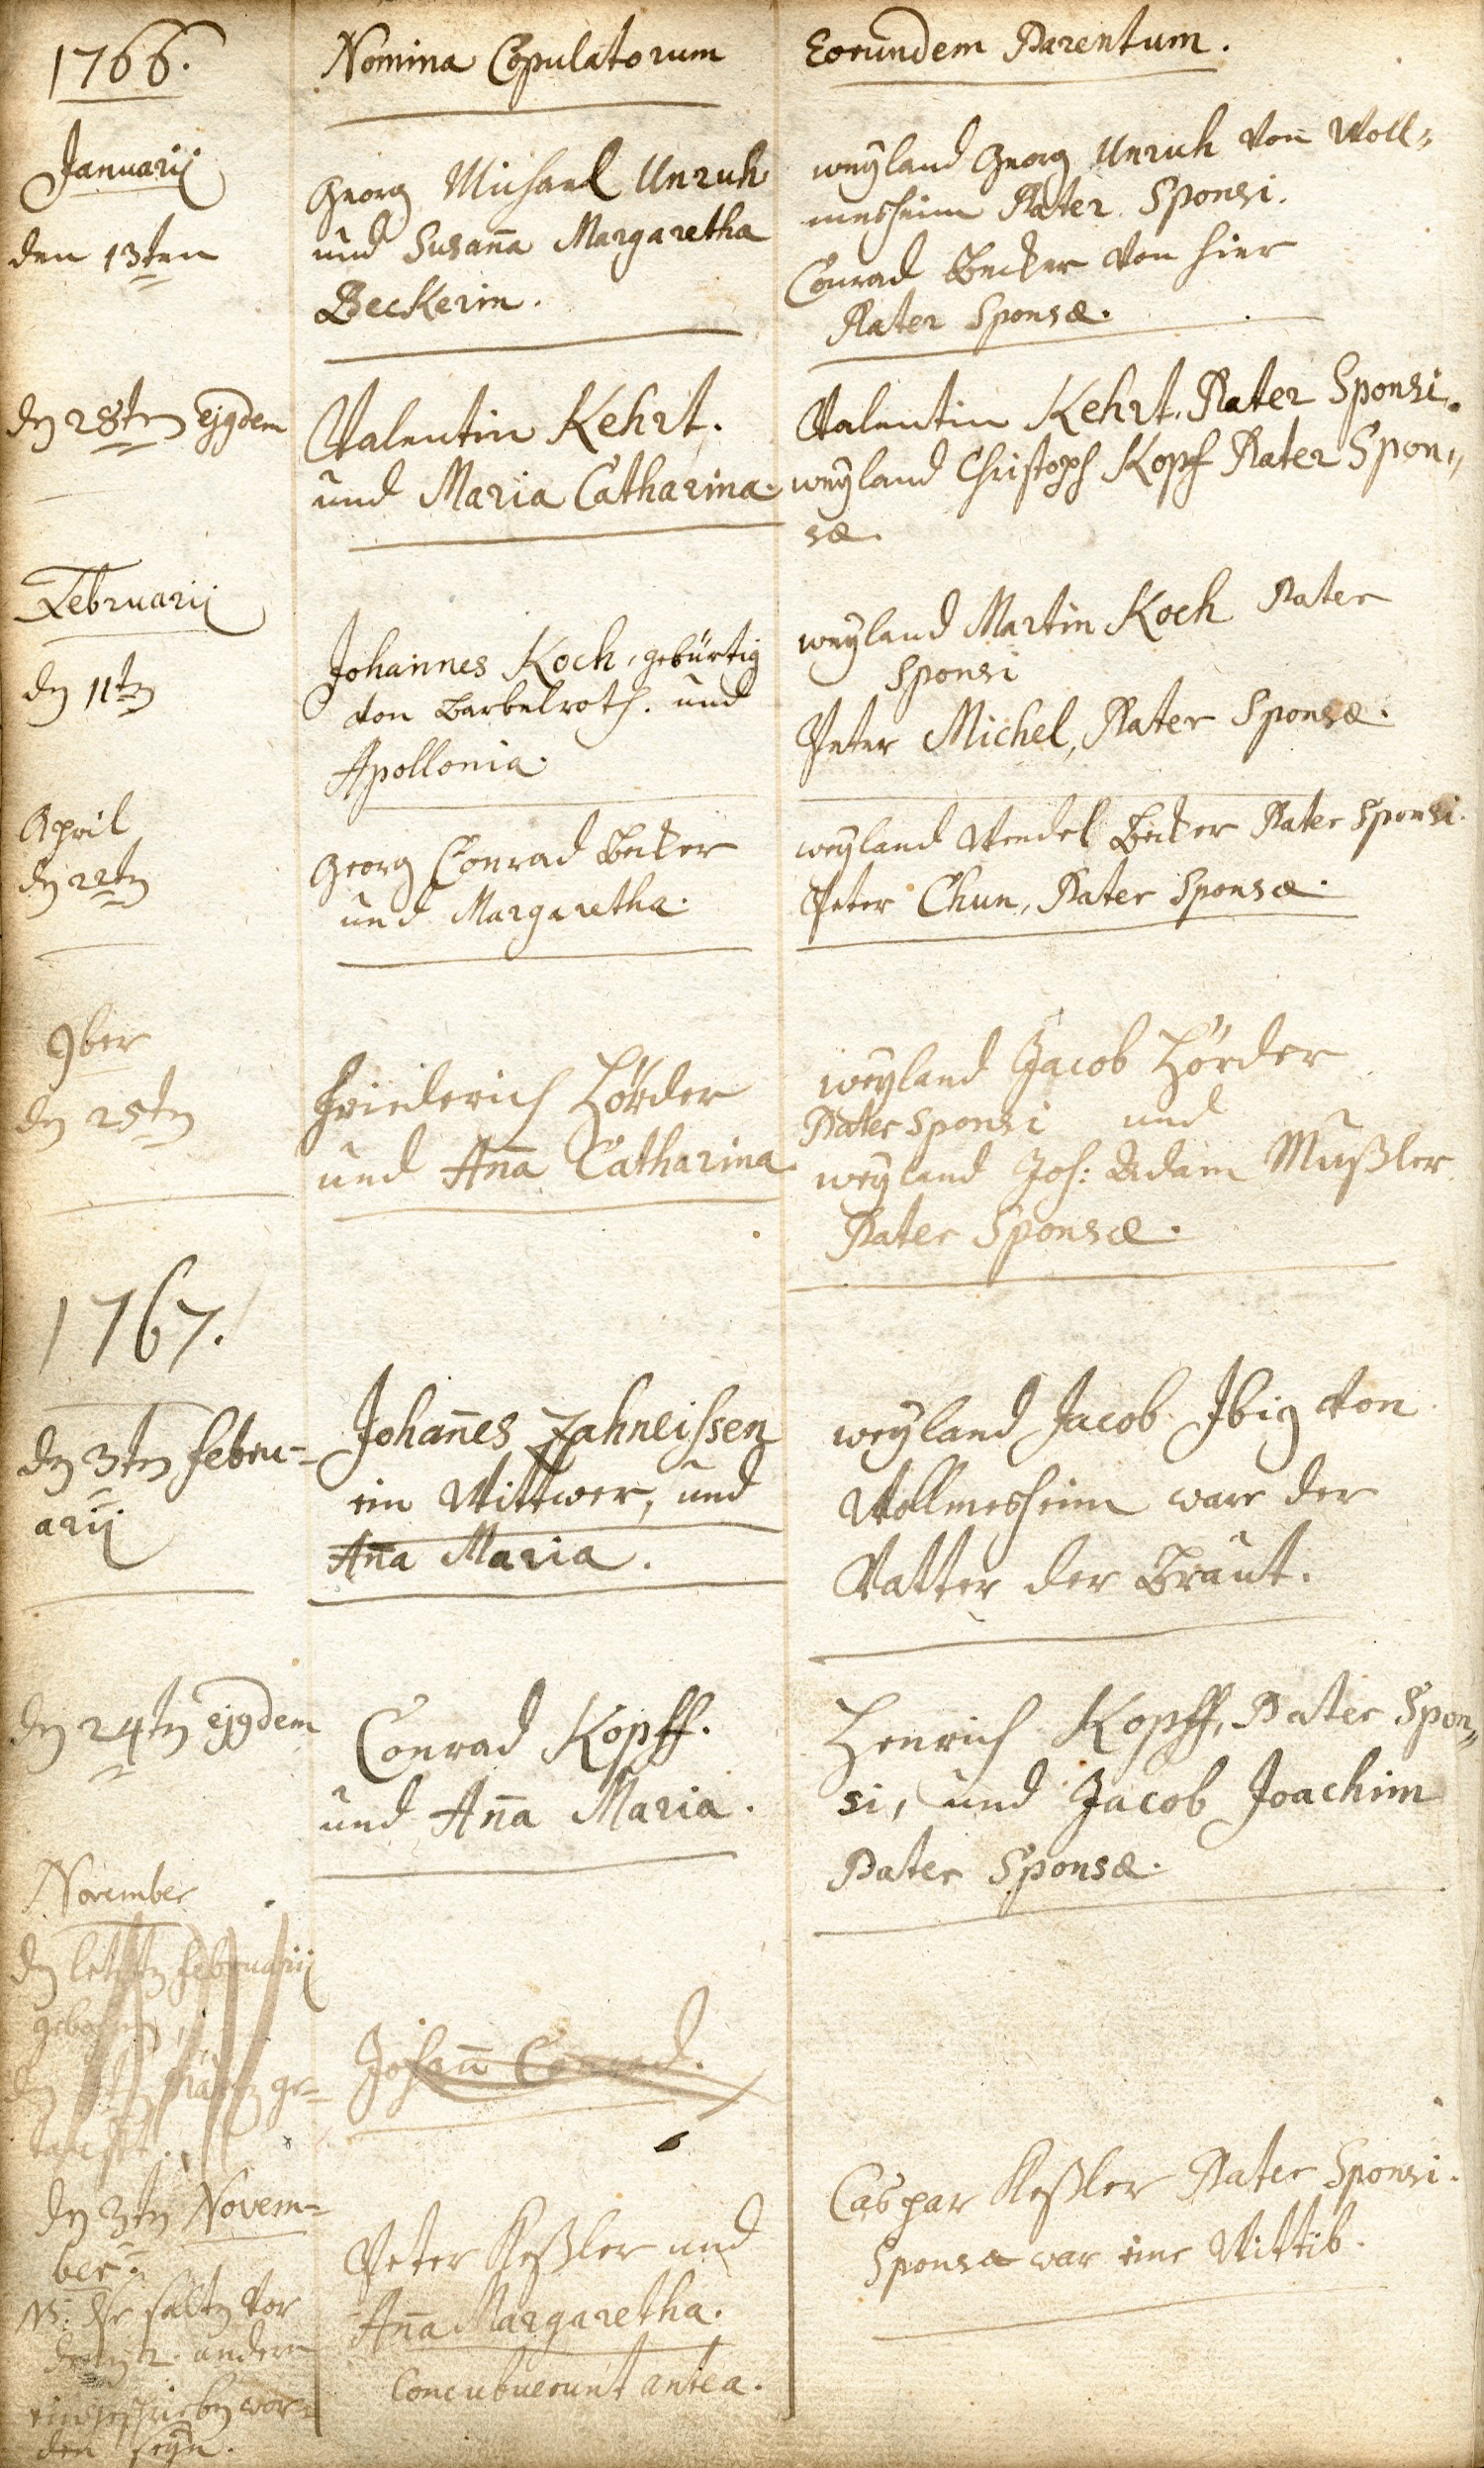 1766.
Nomina Copulatorum
Eorundem Parentum.
Januarij
den 13ten
Georg Michael Unruh
und Susan̄a Margaretha
Beckerin.
weyland Georg Unruh von Woll„
mesheim Pater Sponsi.
Conrad Becker von hier
Pater Sponsæ.
dn 28tn ejgdem
Valentin Kehrt.
und Maria Catharina.
Valentin Kehrt. Pater Sponsi.
weyland Christoph Kopf Pater Spon„
sæ.
Februarij
dn 11tn
Johannes Koch, gebürtig
von Barbelroth. und
Apollonia.
weyland Martin Koch Pater
Sponsi
Peter Michel, Pater Sponsæ.
April
dn 22tn
Georg Conrad Becker
und Margaretha.
weyland Wendel Becker Pater Sponsi.
Peter Chun, Pater Sponsæ.
9ber
dn 25tn
Friederich Hörder
und An̄a Catharina
weyland Jacob Hörder
Pater Sponsi und
weyland Joh: Adam Mußler
Pater Sponsæ.
1767.
dn 3tn Febru=
arij
Johan̄es Zahneissen
ein Wittwer, und
An̄a Maria.
weyland Jacob Ibig von
Wollmesheim ware der
Vatter der Braut.
dn 24tn ejgdem
Conrad Kopff.
und An̄a Maria.
Henrich Kopff, Pater Spon„
si, und Jacob Joachim
Pater Sponsæ.
November
dn letztn Februarij
gebohrn,
dn Märtz ge=
taufft.
Johan̄ Conrad.
dn 3tn Novem=
ber.
Peter Keßler und
An̄a Margaretha.
Concubuerunt antea.
Caspar Keßler Pater Sponsi.
Sponsa war eine Wittib.
NB: Die haltn vor
2. andern
eingeschriebn wor=
den seyn.